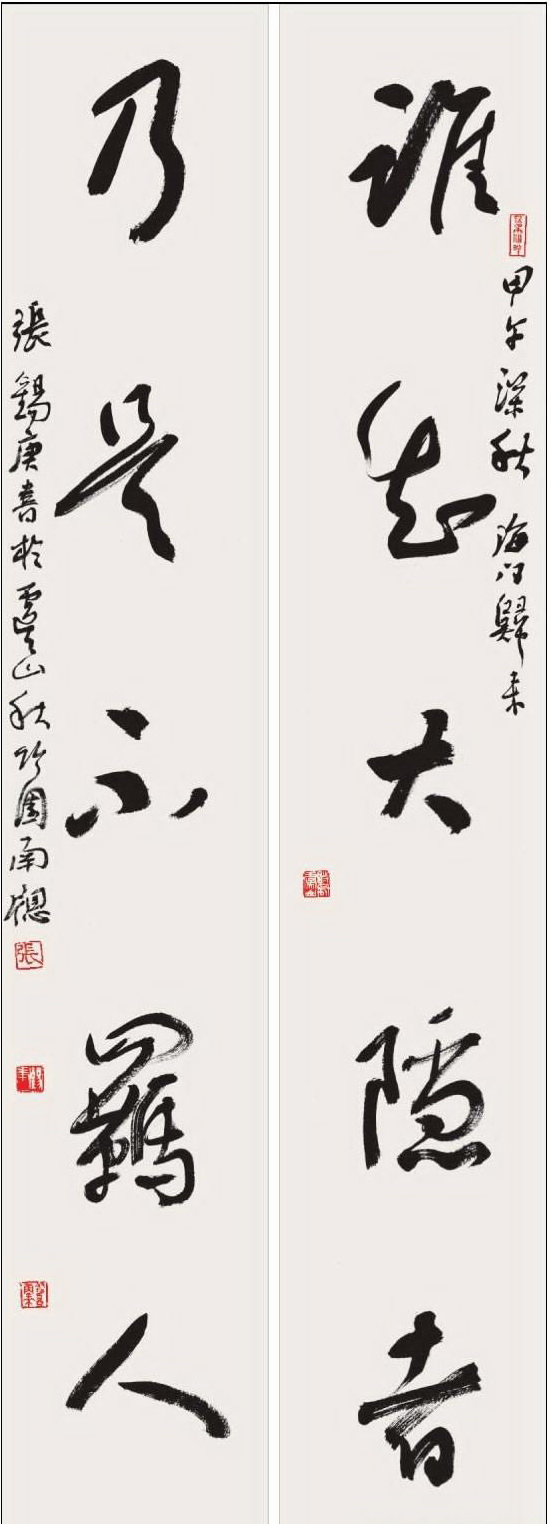 誰知大隱者
甲午深秋海門歸來
乃是不羈人
張錫庚書於虞山秋吟園南窗
張